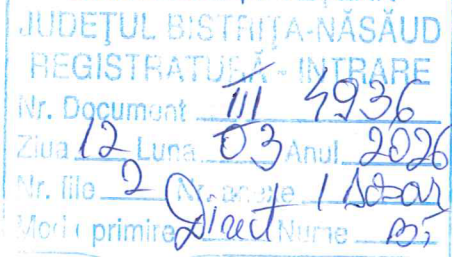 JUDEȚUL BISTRIȚA-NĂSĂUD
REGISTRATURĂ - INTRARE
Nr. Document III 4936
Ziua 12 Luna 03 Anul 2026
Nr. file 2 Nr. anexe 1 Dosar
Mod primire Direct Nume